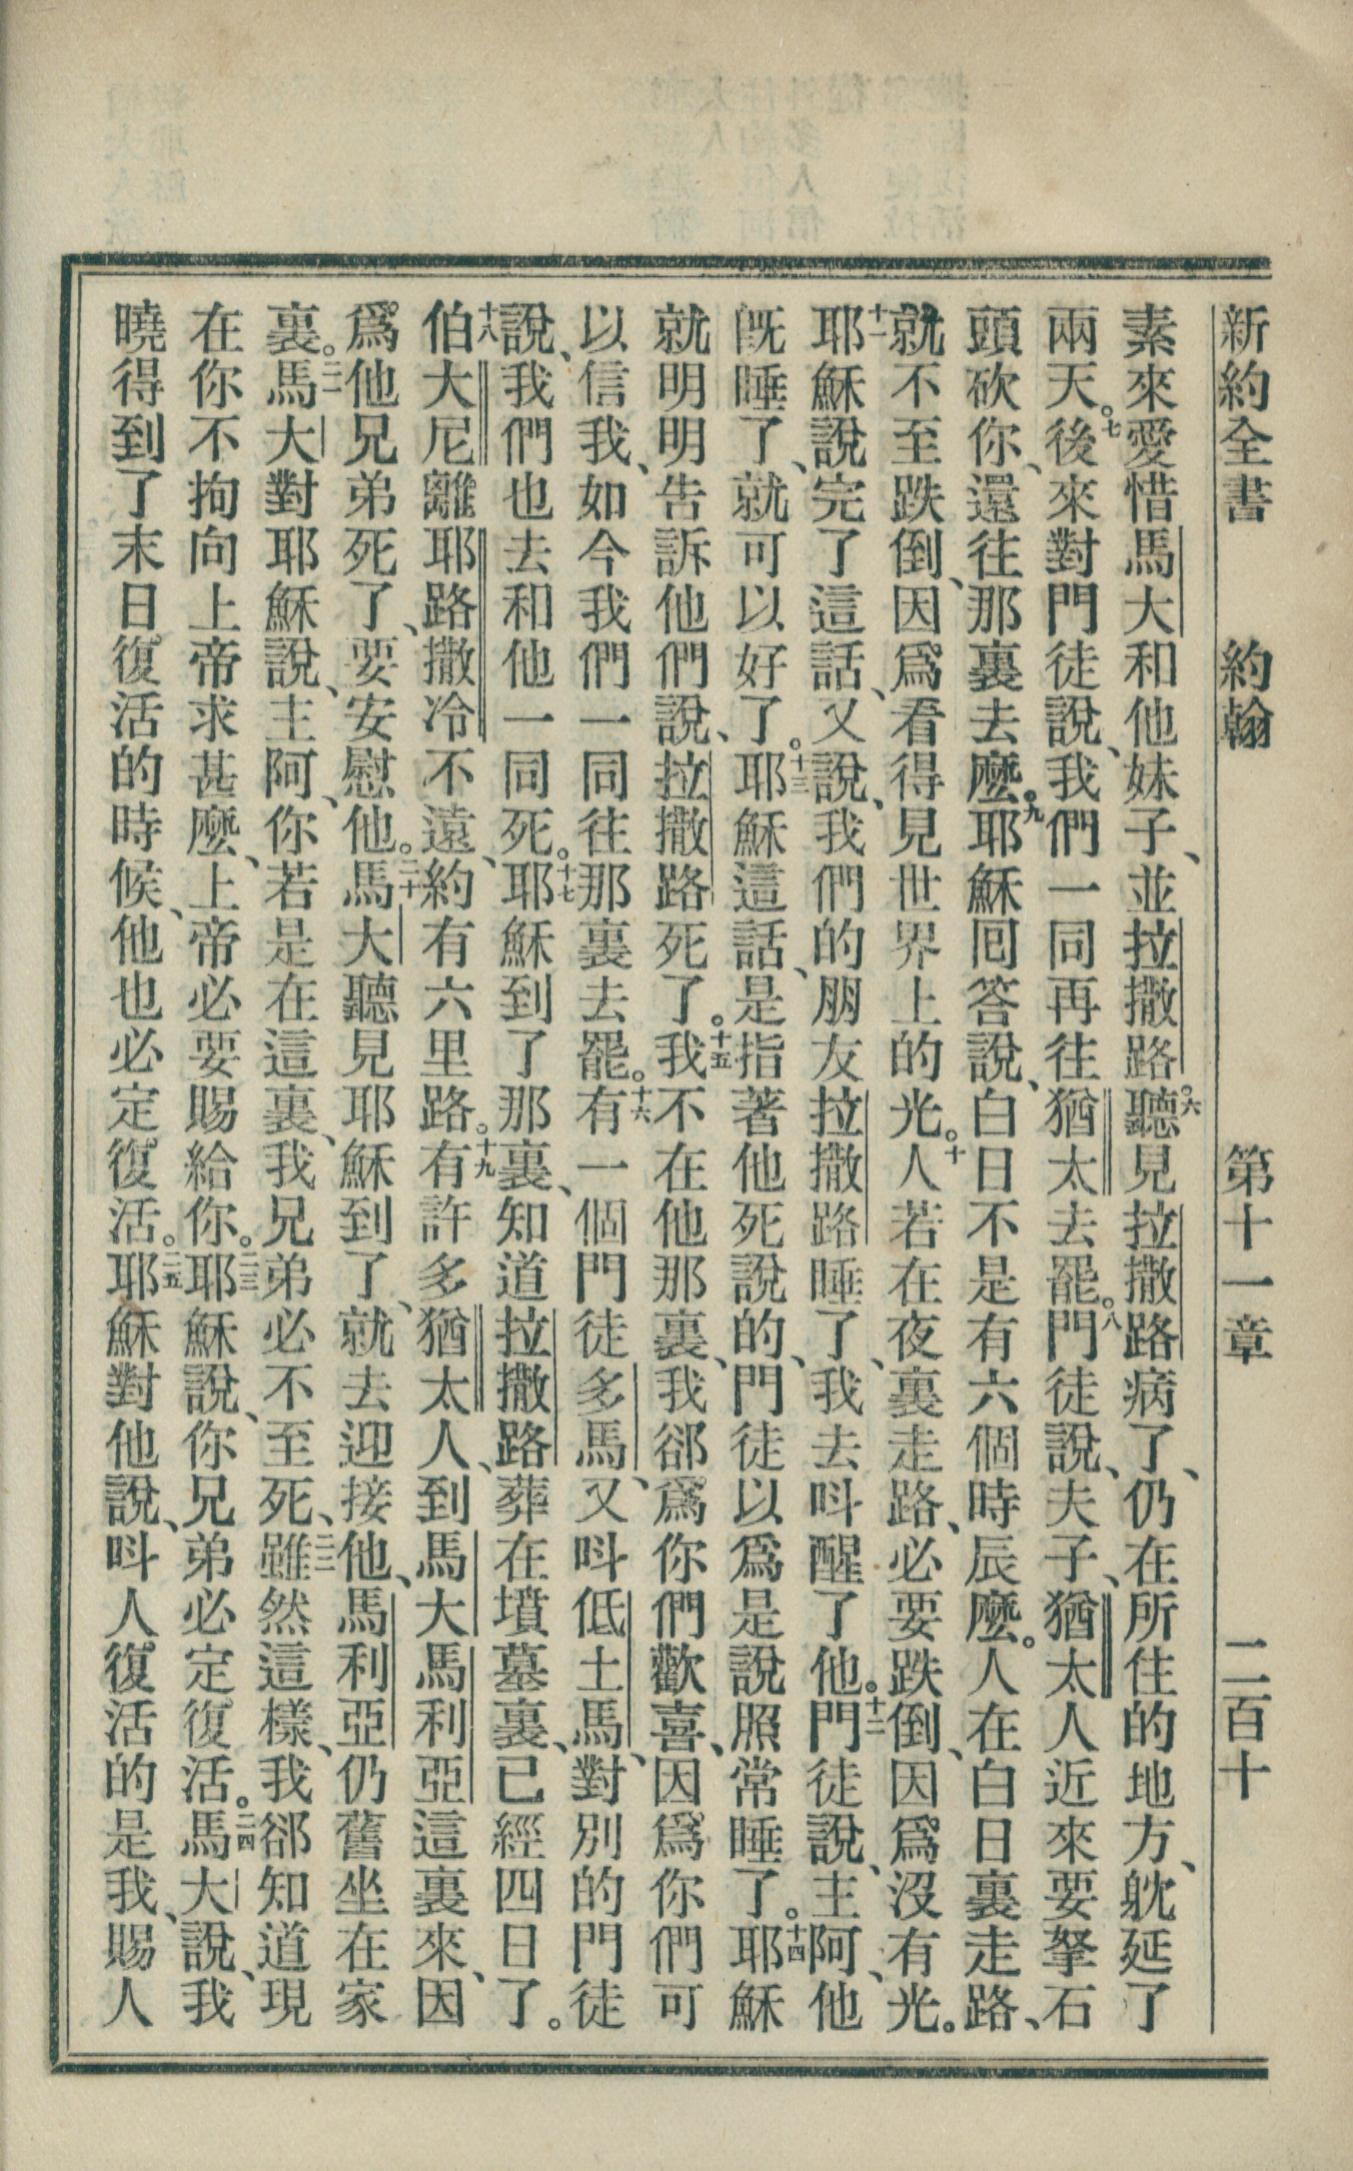 新約全書　約翰　第十一章　二百十
素來愛惜馬大和他妹子、並拉撒路。六聽見拉撒路病了、仍在所住的地方、躭延了
兩天。七後來對門徒說、我們一同再往猶太去罷。八門徒說、夫子、猶太人近來要拏石
頭砍你、還往那裏去麼。九耶穌囘答說、白日不是有六個時辰麼。人在白日裏走路、
就不至跌倒、因爲看得見世界上的光。十人若在夜裏走路、必要跌倒、因爲沒有光。
十一耶穌說完了這話、又說、我們的朋友拉撒路睡了、我去呌醒了他。十二門徒說、主阿、他
旣睡了、就可以好了。十三耶穌這話、是指著他死說的、門徒以爲是說照常睡了。十四耶穌
就明明告訴他們說、拉撒路死了。十五我不在他那裏、我郤爲你們歡喜、因爲你們可
以信我、如今我們一同往那裏去罷。十六有一個門徒多馬、又呌低土馬、對別的門徒
說、我們也去和他一同死。十七耶穌到了那裏、知道拉撒路葬在墳墓裏、已經四日了。
十八伯大尼離耶路撒冷不遠、約有六里路。十九有許多猶太人、到馬大馬利亞這裏來、因
爲他兄弟死了、要安慰他。二十馬大聽見耶穌到了、就去迎接他、馬利亞仍舊坐在家
裏。二一馬大對耶穌說、主阿、你若是在這裏、我兄弟必不至死、二二雖然這樣、我郤知道現
在你不拘向上帝求甚麼、上帝必要賜給你。二三耶穌說、你兄弟必定復活。二四馬大說、我
曉得到了末日復活的時候、他也必定復活。二五耶穌對他說、呌人復活的是我、賜人